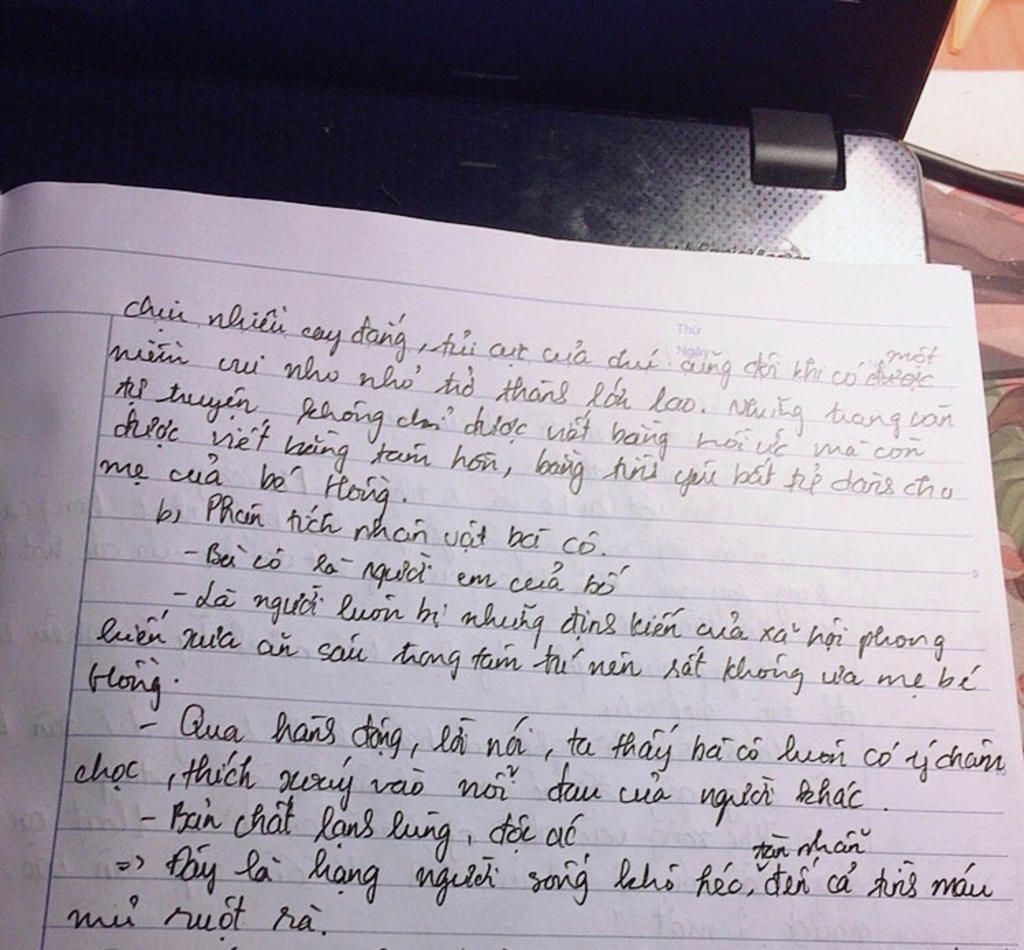 Thứ
Ngày
chịu nhiều cay đắng, tủi cực của chú cũng đôi khi có được một
niềm vui nho nhỏ trở thành lớn lao. Những trang văn
tự truyện không chỉ được viết bằng hồi ức mà còn
được viết bằng tâm hồn, bằng tình yêu bất tử dành cho
mẹ của bé Hồng.
b, Phân tích nhân vật bà cô.
- Bà cô là người em của bố
- Là người luôn bị những định kiến của xã hội phong
kiến xưa ăn sâu trong tâm trí nên rất không ưa mẹ bé
Hồng.
- Qua hành động, lời nói, ta thấy bà cô luôn có ý châm
chọc, thích xoáy vào nỗi đau của người khác.
- Bản chất lạnh lùng, độc ác
=> Đây là hạng người sống khô héo, tàn nhẫn đến cả tình máu
mủ ruột rà.